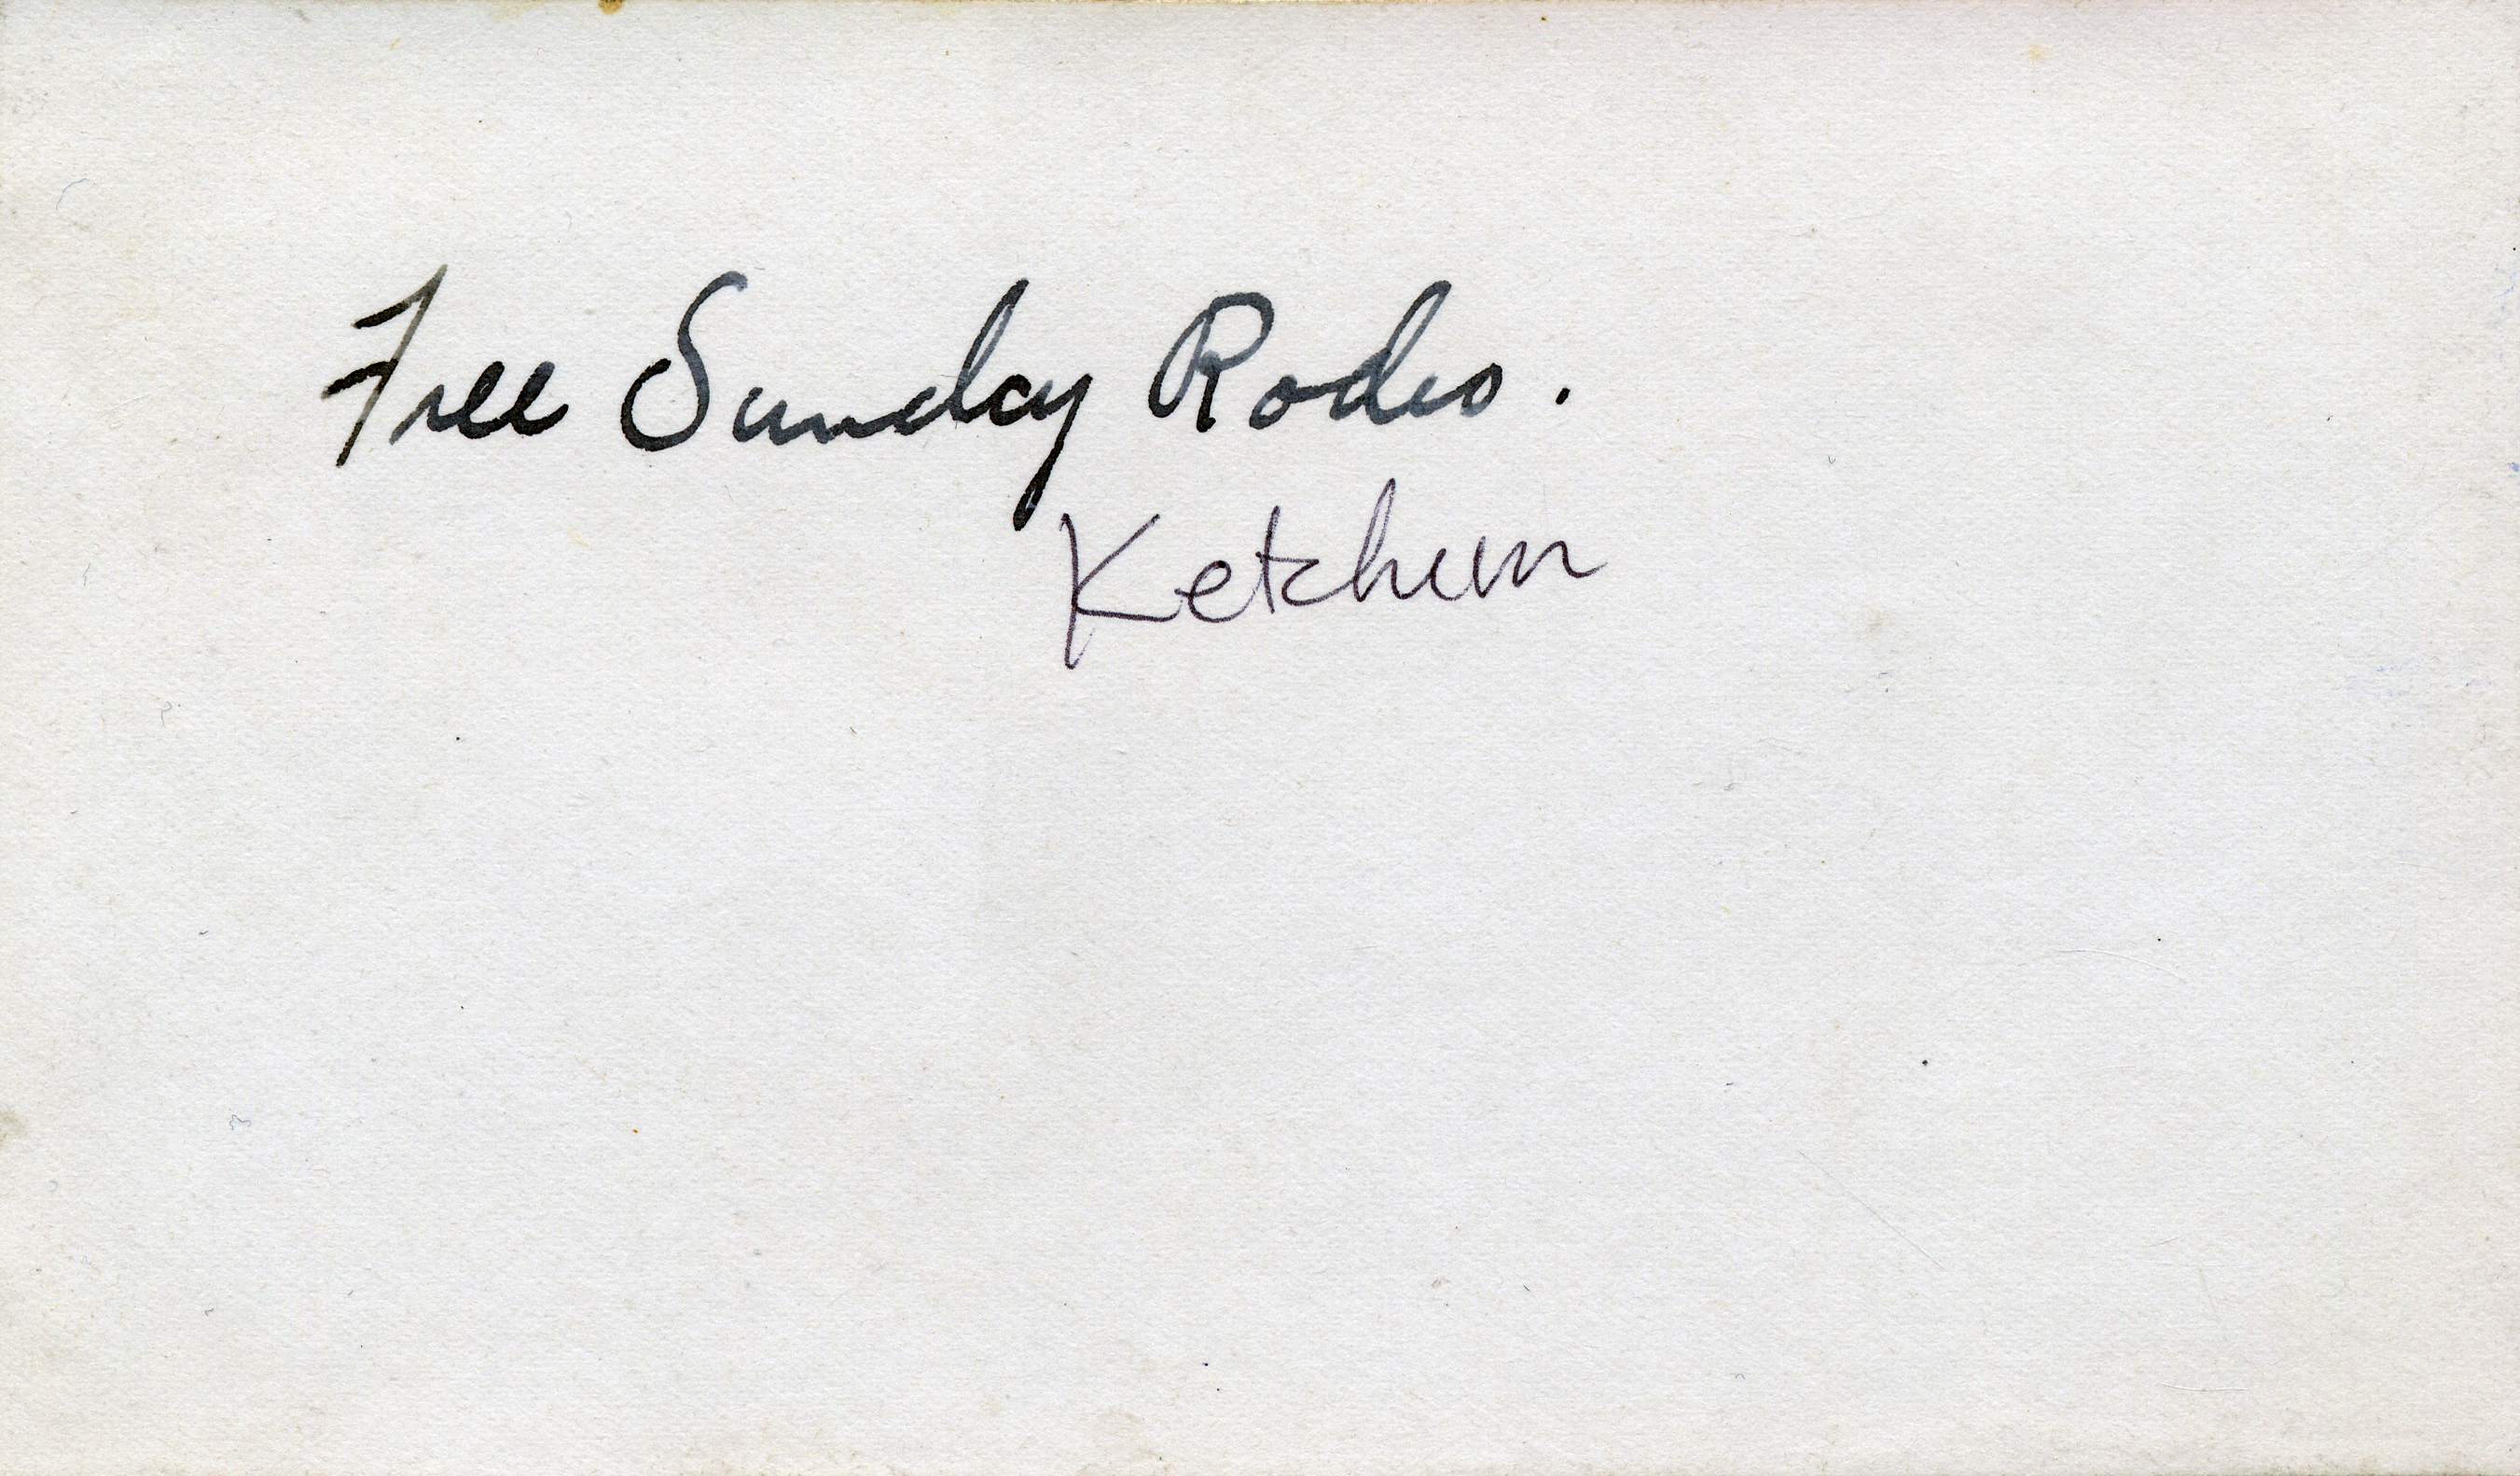 Free Sunday Rodeo.
Ketchum